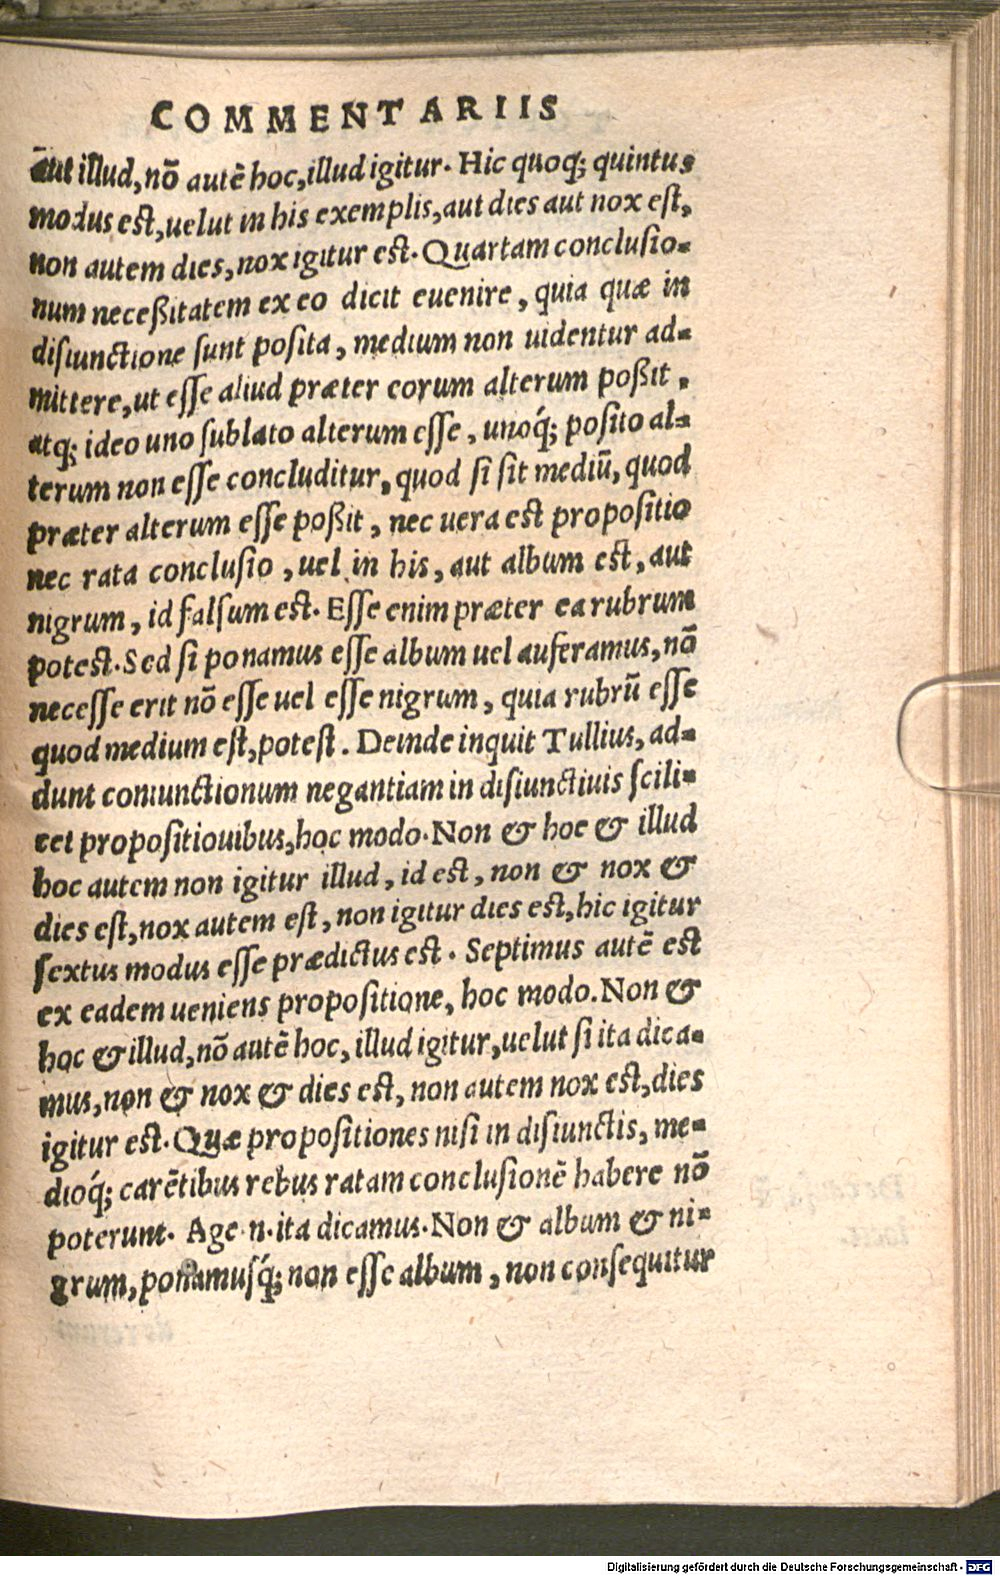 COMMENTARIIS
aut illud, nō autē hoc, illud igitur. Hic quoq; quintus
modus est, uelut in his exemplis, aut dies aut nox est,
non autem dies, nox igitur est. Quartam conclusio-
num neceßitatem ex eo dicit euenire, quia quæ in
disiunctione sunt posita, medium non uidentur ad-
mittere, ut esse aliud præter eorum alterum poßit,
atq; ideo uno sublato alterum esse, unoq́; posito al-
terum non esse concluditur, quod si sit mediū, quod
præter alterum esse poßit, nec uera est propositio
nec rata conclusio, uel in his, aut album est, aut
nigrum, id falsum est. Esse enim præter ea rubrum
potest. Sed si ponamus esse album uel auferamus, nō
necesse erit nō esse uel esse nigrum, quia rubrū esse
quod medium est, potest. Deinde inquit Tullius, ad-
dunt coniunctionum negantiam in disiunctiuis scili-
cet propositiouibus, hoc modo. Non & hoc & illud
hoc autem non igitur illud, id est, non & nox &
dies est, nox autem est, non igitur dies est, hic igitur
sextus modus esse prædictus est. Septimus autē est
ex eadem ueniens propositione, hoc modo. Non &
hoc & illud, nō autē hoc, illud igitur, uelut si ita dica-
mus, non & nox & dies est, non autem nox est, dies
igitur est. Quæ propositiones nisi in disiunctis, me-
dioq́; carētibus rebus ratam conclusionē habere nō
poterunt. Age n. ita dicamus. Non & album & ni-
grum, ponamusq́; non esse album, non consequitur
Digitalisierung gefördert durch die Deutsche Forschungsgemeinschaft - DFG